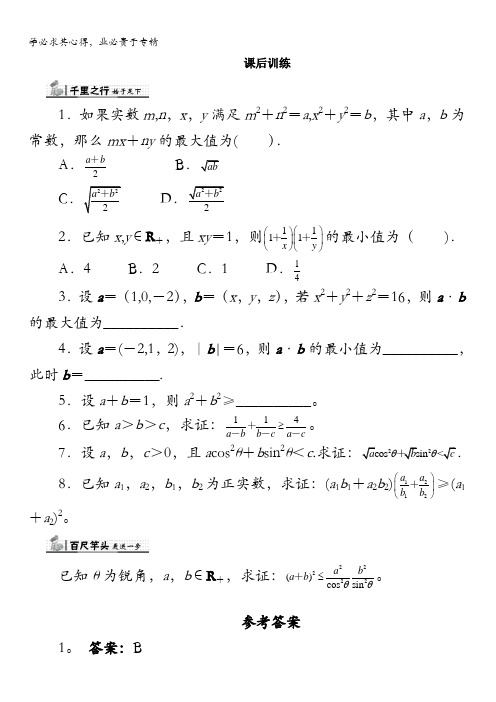 学必求其心得，业必贵于专精
课后训练
千里之行 始于足下
1．如果实数m,n，x，y满足m²＋n²＝a,x²＋y²＝b，其中a，b为
常数，那么mx＋ny的最大值为(　　)．
A．(a＋b)/2　　B．√ab
C．√(a²＋b²)/2　　D．√((a²＋b²)/2)
2．已知x,y∈R₊，且xy＝1，则(1+1/x)(1+1/y)的最小值为（　　)．
A．4　B．2　C．1　D．1/4
3．设a＝（1,0,－2），b＝（x，y，z），若x²＋y²＋z²＝16，则a·b
的最大值为__________．
4．设a＝(－2,1，2)，|b|＝6，则a·b的最小值为__________，
此时b＝__________.
5．设a＋b＝1，则a²＋b²≥__________。
6．已知a＞b＞c，求证：1/(a－b)+1/(b－c)≥4/(a－c)。
7．设a，b，c＞0，且acos²θ＋bsin²θ＜c.求证：√a cos²θ+√b sin²θ<√c．
8．已知a₁，a₂，b₁，b₂为正实数，求证：(a₁b₁＋a₂b₂)(a₁/b₁+a₂/b₂)≥(a₁
＋a₂)²。
百尺竿头 更进一步
已知θ为锐角，a，b∈R₊，求证：(a+b)²≤a²/cos²θ b²/sin²θ。
参考答案
1。 答案：B